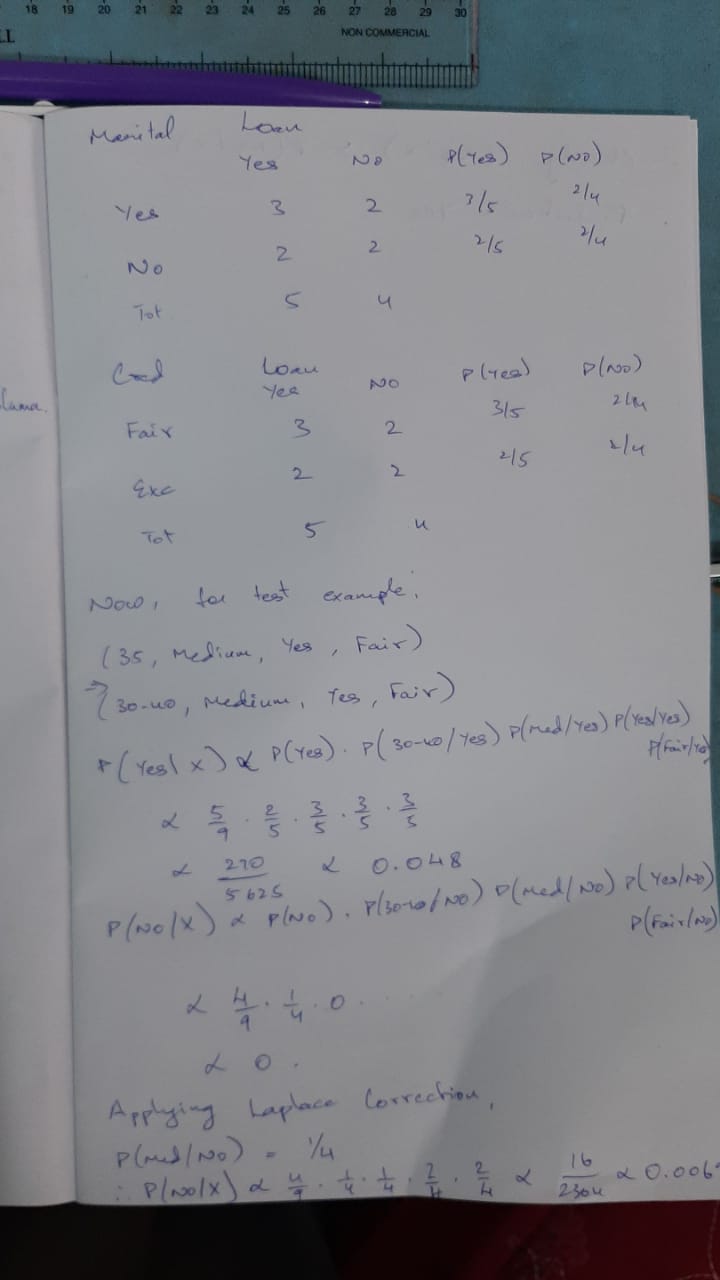 18 19 20 21 22 23 24 25 26 27 28 29 30
LL
NON COMMERCIAL
Marital Loan
Yes No P(Yes) P(No)
Yes 3 2 3/5 2/4
No 2 2 2/5 2/4
Tot 5 4
Cred Loan
Yes No P(Yes) P(No)
Fair 3 2 3/5 2/4
Exc 2 2 2/5 2/4
Tot 5 4
Now, for test example,
(35, Medium, Yes, Fair)
→(30-40, Medium, Yes, Fair)
P(Yes|X) ∝ P(Yes). P(30-40/Yes) P(Med/Yes) P(Yes/Yes)
P(Fair/Yes)
∝ 5/9 . 2/5 . 3/5 . 3/5 . 3/5
∝ 270/5625 ∝ 0.048
P(No/X) ∝ P(No). P(30-40/No) P(Med/No) P(Yes/No)
P(Fair/No)
∝ 4/9 . 1/4 . 0 ....
∝ 0.
Applying Laplace Correction,
P(med/No) = 1/4
∴ P(No/X) ∝ 4/9 . 1/4 . 1/4 . 2/4 . 2/4 ∝ 16/2304 ∝ 0.006